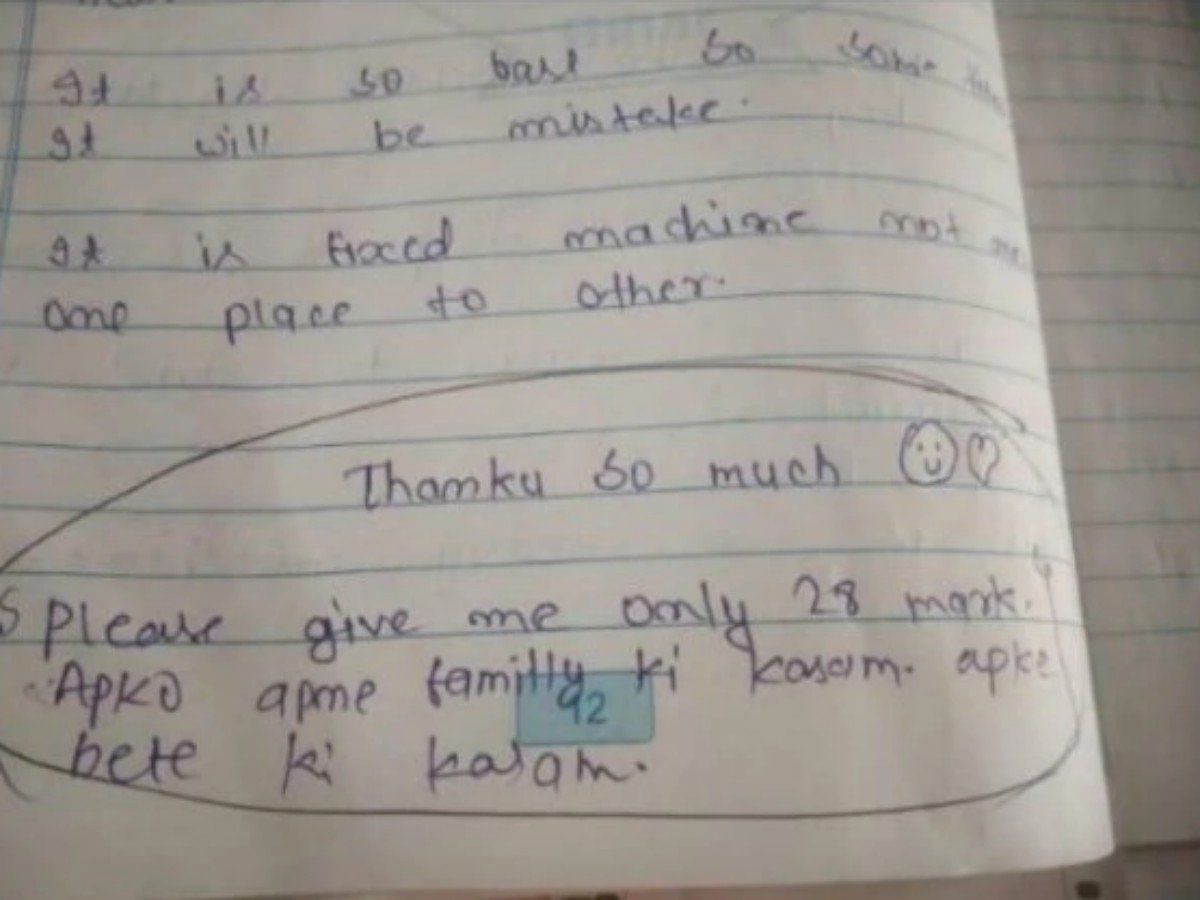 It is so base so some
It will be mistake.
It is fixed machine not
one place to other.
Thanku so much
Please give me only 28 mark.
Apko apne familly ki kasam. apke
bete ki kasam.
92